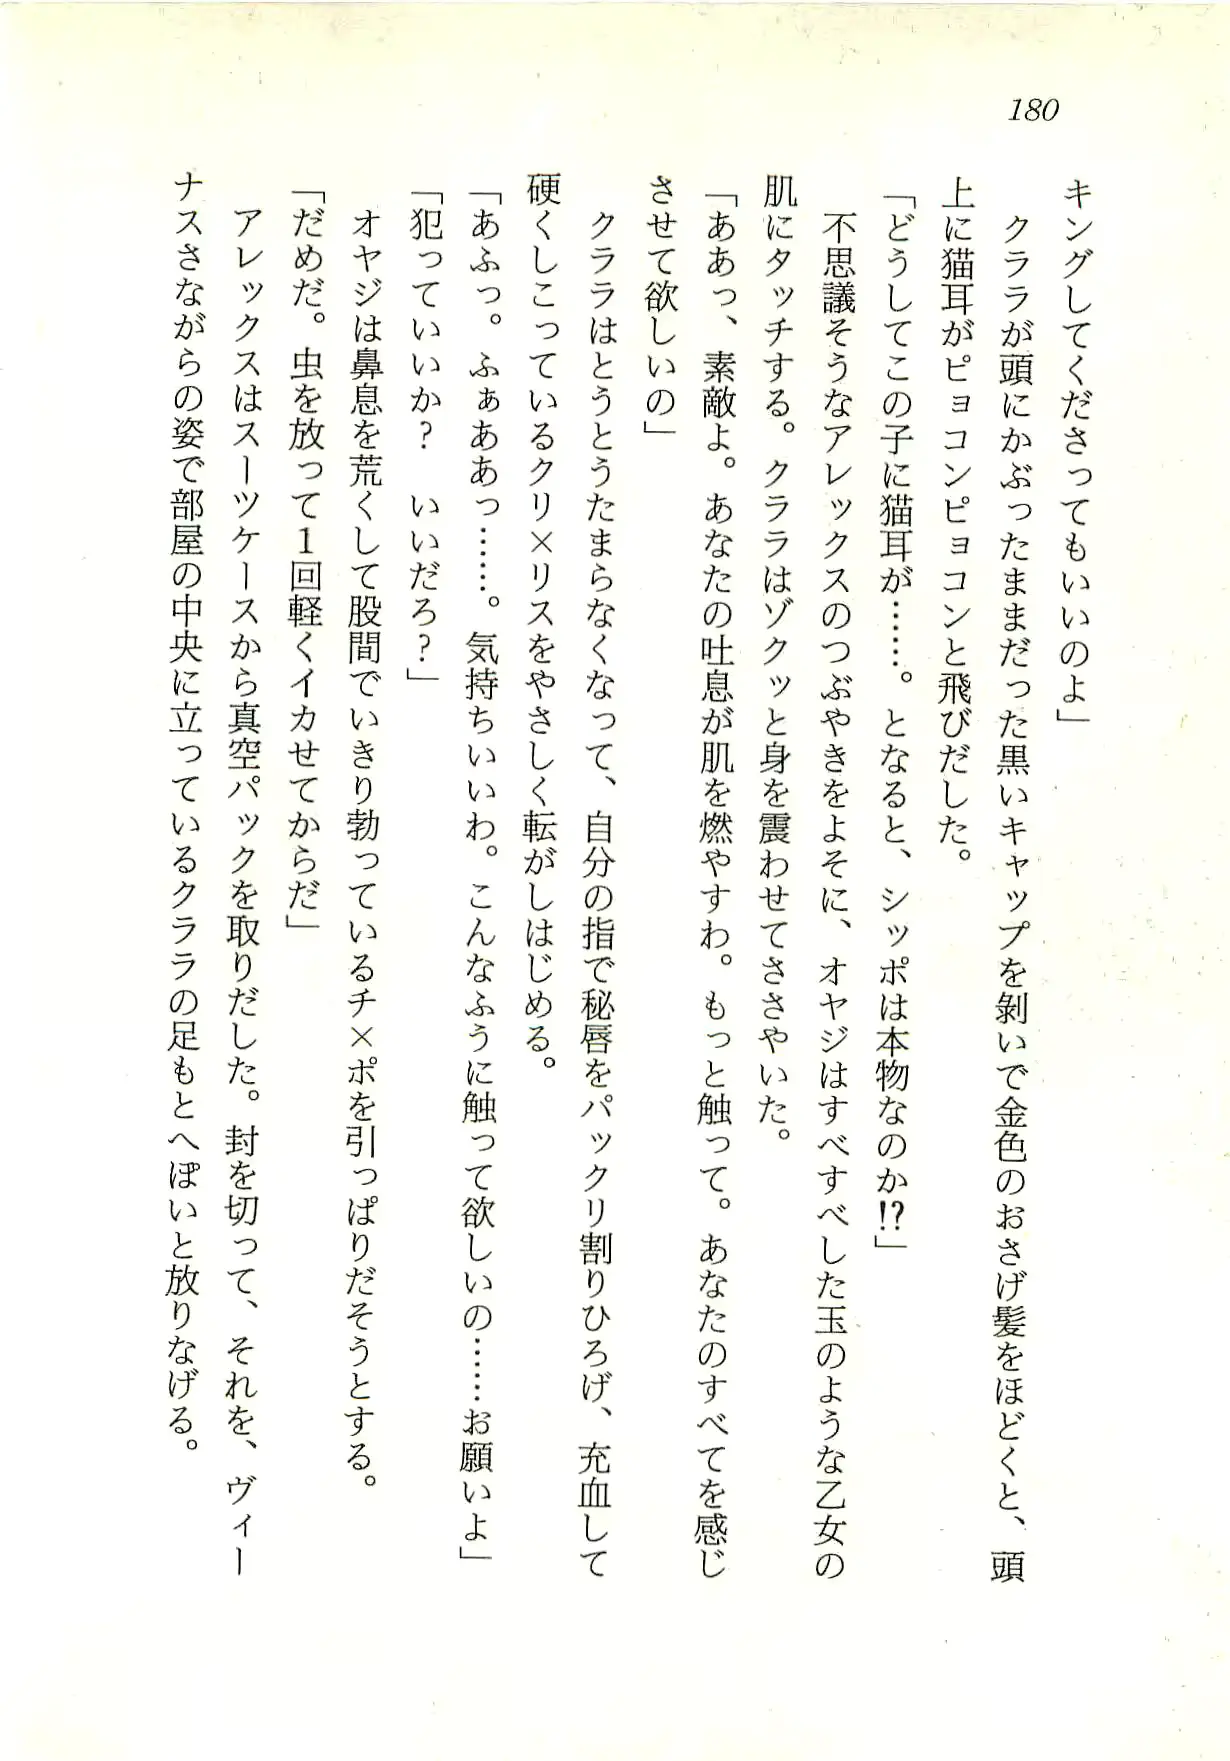 180
キングしてくださってもいいのよ」
　クララが頭にかぶったままだった黒いキャップを剝いで金色のおさげ髪をほどくと、頭
上に猫耳がピョコンピョコンと飛びだした。
「どうしてこの子に猫耳が……。となると、シッポは本物なのか!?」
　不思議そうなアレックスのつぶやきをよそに、オヤジはすべすべした玉のような乙女の
肌にタッチする。クララはゾクッと身を震わせてささやいた。
「ああっ、素敵よ。あなたの吐息が肌を燃やすわ。もっと触って。あなたのすべてを感じ
させて欲しいの」
　クララはとうとうたまらなくなって、自分の指で秘唇をパックリ割りひろげ、充血して
硬くしこっているクリ×リスをやさしく転がしはじめる。
「あふっ。ふぁああっ……。気持ちいいわ。こんなふうに触って欲しいの……お願いよ」
「犯っていいか？　いいだろ？」
　オヤジは鼻息を荒くして股間でいきり勃っているチ×ポを引っぱりだそうとする。
「だめだ。虫を放って１回軽くイカせてからだ」
　アレックスはスーツケースから真空パックを取りだした。封を切って、それを、ヴィー
ナスさながらの姿で部屋の中央に立っているクララの足もとへぽいと放りなげる。